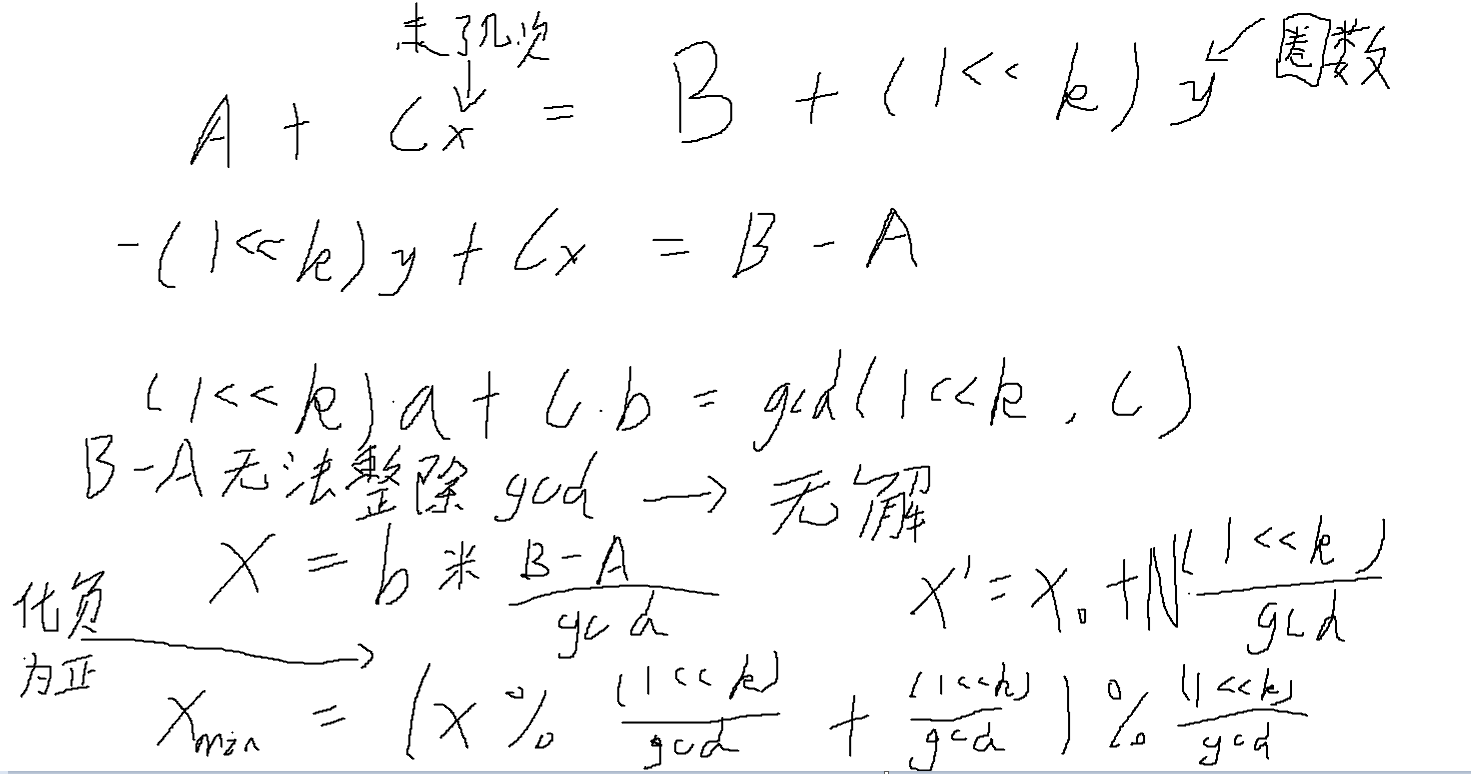 走了几次
圈数
A + Cx = B + (1<<k)y
-(1<<k)y + Cx = B - A
(1<<k)·a + C·b = gcd(1<<k, C)
B-A无法整除gcd → 无解
X = b * (B-A)/gcd
X' = X₀ + N·(1<<k)/gcd
化负
为正
Xmin = (X % (1<<k)/gcd + (1<<k)/gcd) % (1<<k)/gcd